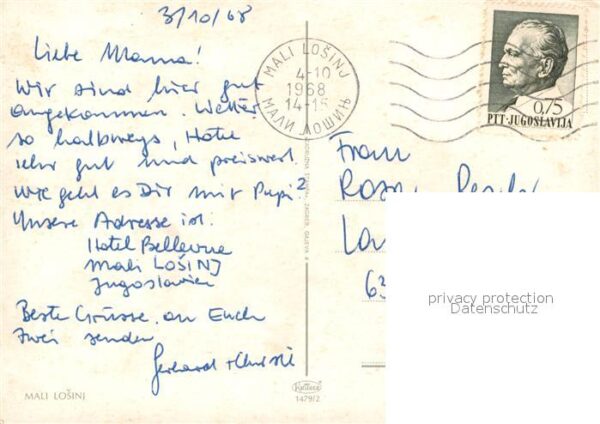 3/10/68
Liebe Mama!
Wir sind hier gut
angekommen. Wetter
so halbwegs, Hotel
sehr gut und preiswert.
Wie geht es Dir mit Pupi?
Unsere Adresse ist:
Hotel Bellevue
Mali LOŠINJ
Jugoslawien
Beste Grüsse an Euch
zwei senden
Gerhard + Christl
MALI LOŠINJ
MALI LOŠINJ
4-10
1968
14-15
МАЛИ ЛОШИЊ
0.75
PTT-JUGOSLAVIJA
Frau
63
privacy protection
Datenschutz
1479/2